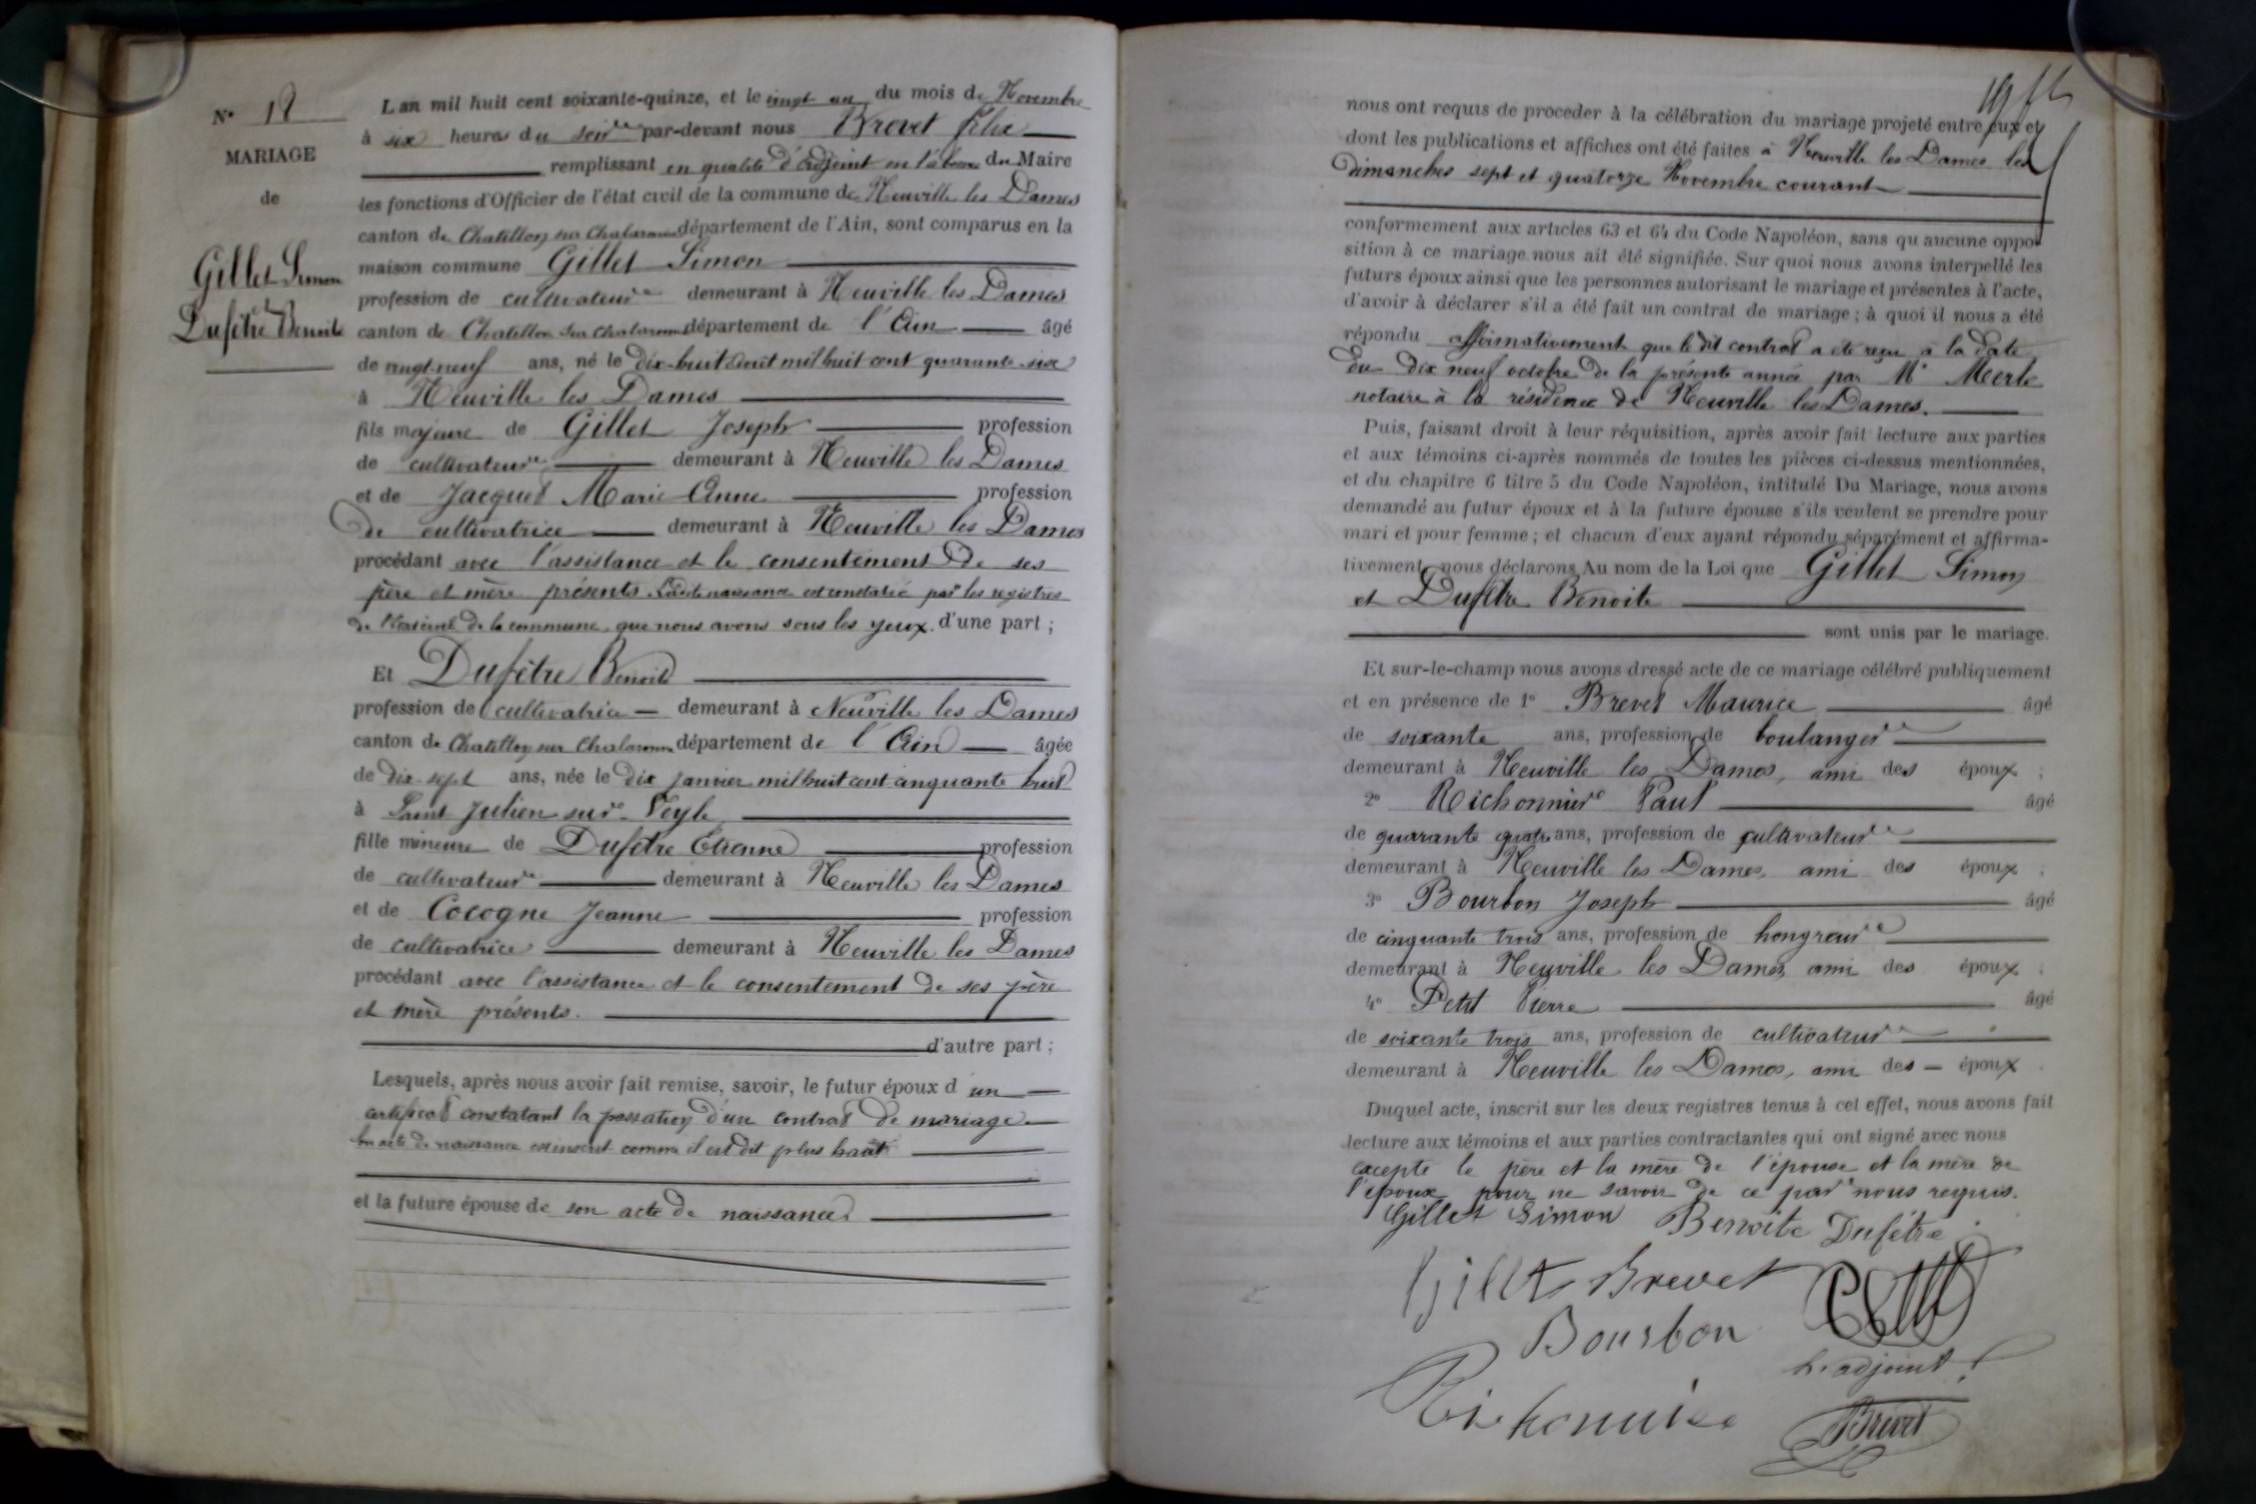 N° 18
MARIAGE
de
Gillet Simon
et
Dufêtre Benoite
L'an mil huit cent soixante-quinze, et le vingt un du mois de Novembre
à six heures du soir par-devant nous Brevet félix
remplissant en qualité d'adjoint en l'absence du Maire
les fonctions d'Officier de l'état civil de la commune de Neuville les Dames
canton de Chatillon sur Chalaronne département de l'Ain, sont comparus en la
maison commune Gillet Simon
profession de cultivateur demeurant à Neuville les Dames
canton de Chatillon sur Chalaronne département de l'Ain âgé
de vingt-neuf ans, né le dix-huit Août mil huit cent quarante-six
à Neuville les Dames
fils majeur de Gillet Joseph profession
de cultivateur demeurant à Neuville les Dames
et de Jacquet Marie Anne profession
de cultivatrice demeurant à Neuville les Dames
procédant avec l'assistance et le consentement de ses
père et mère présents. Ladite naissance est constatée par les registres
de l'état civil de la commune que nous avons sous les yeux. d'une part ;
Et Dufêtre Benoite
profession de cultivatrice demeurant à Neuville les Dames
canton de Chatillon sur Chalaronne département de l'Ain âgée
de dix-sept ans, née le dix janvier mil huit cent cinquante huit
à Saint Julien sur Veyle
fille mineure de Dufêtre Etienne profession
de cultivateur demeurant à Neuville les Dames
et de Cocogne Jeanne profession
de cultivatrice demeurant à Neuville les Dames
procédant avec l'assistance et le consentement de ses père
et mère présents.
d'autre part ;
Lesquels, après nous avoir fait remise, savoir, le futur époux d'un
certificat constatant la passation d'un contrat de mariage
Son acte de naissance est inscrit comme il est dit plus haut
et la future épouse de son acte de naissance.
nous ont requis de procéder à la célébration du mariage projeté entre eux et
dont les publications et affiches ont été faites à Neuville les Dames les
dimanches sept et quatorze Novembre courant
conformément aux articles 63 et 64 du Code Napoléon, sans qu'aucune oppo-
sition à ce mariage nous ait été signifiée. Sur quoi nous avons interpellé les
futurs époux ainsi que les personnes autorisant le mariage et présentes à l'acte,
d'avoir à déclarer s'il a été fait un contrat de mariage ; à quoi il nous a été
répondu affirmativement que le dit contrat a été reçu à la date
du dix neuf octobre de la présente année par Me Merle
notaire à la résidence de Neuville les Dames.
Puis, faisant droit à leur réquisition, après avoir fait lecture aux parties
et aux témoins ci-après nommés de toutes les pièces ci-dessus mentionnées,
et du chapitre 6 titre 5 du Code Napoléon, intitulé Du Mariage, nous avons
demandé au futur époux et à la future épouse s'ils veulent se prendre pour
mari et pour femme ; et chacun d'eux ayant répondu séparément et affirma-
tivement, nous déclarons Au nom de la Loi que Gillet Simon
et Dufêtre Benoite
sont unis par le mariage.
Et sur-le-champ nous avons dressé acte de ce mariage célébré publiquement
et en présence de 1° Brevet Maurice âgé
de soixante ans, profession de boulanger
demeurant à Neuville les Dames, ami des époux ;
2° Richonnier Paul âgé
de quarante quatre ans, profession de cultivateur
demeurant à Neuville les Dames, ami des époux ;
3° Bourbon Joseph âgé
de cinquante trois ans, profession de hongreur
demeurant à Neuville les Dames, ami des époux ;
4° Petit Pierre âgé
de soixante trois ans, profession de cultivateur
demeurant à Neuville les Dames, ami des époux
Duquel acte, inscrit sur les deux registres tenus à cet effet, nous avons fait
lecture aux témoins et aux parties contractantes qui ont signé avec nous
excepté le père et la mère de l'épouse et la mère de
l'époux pour ne savoir de ce par nous requis.
Gillet Simon Benoite Dufêtre
Gillet Brevet Petit
Bourbon
L'adjoint
Richonnier
Brevet